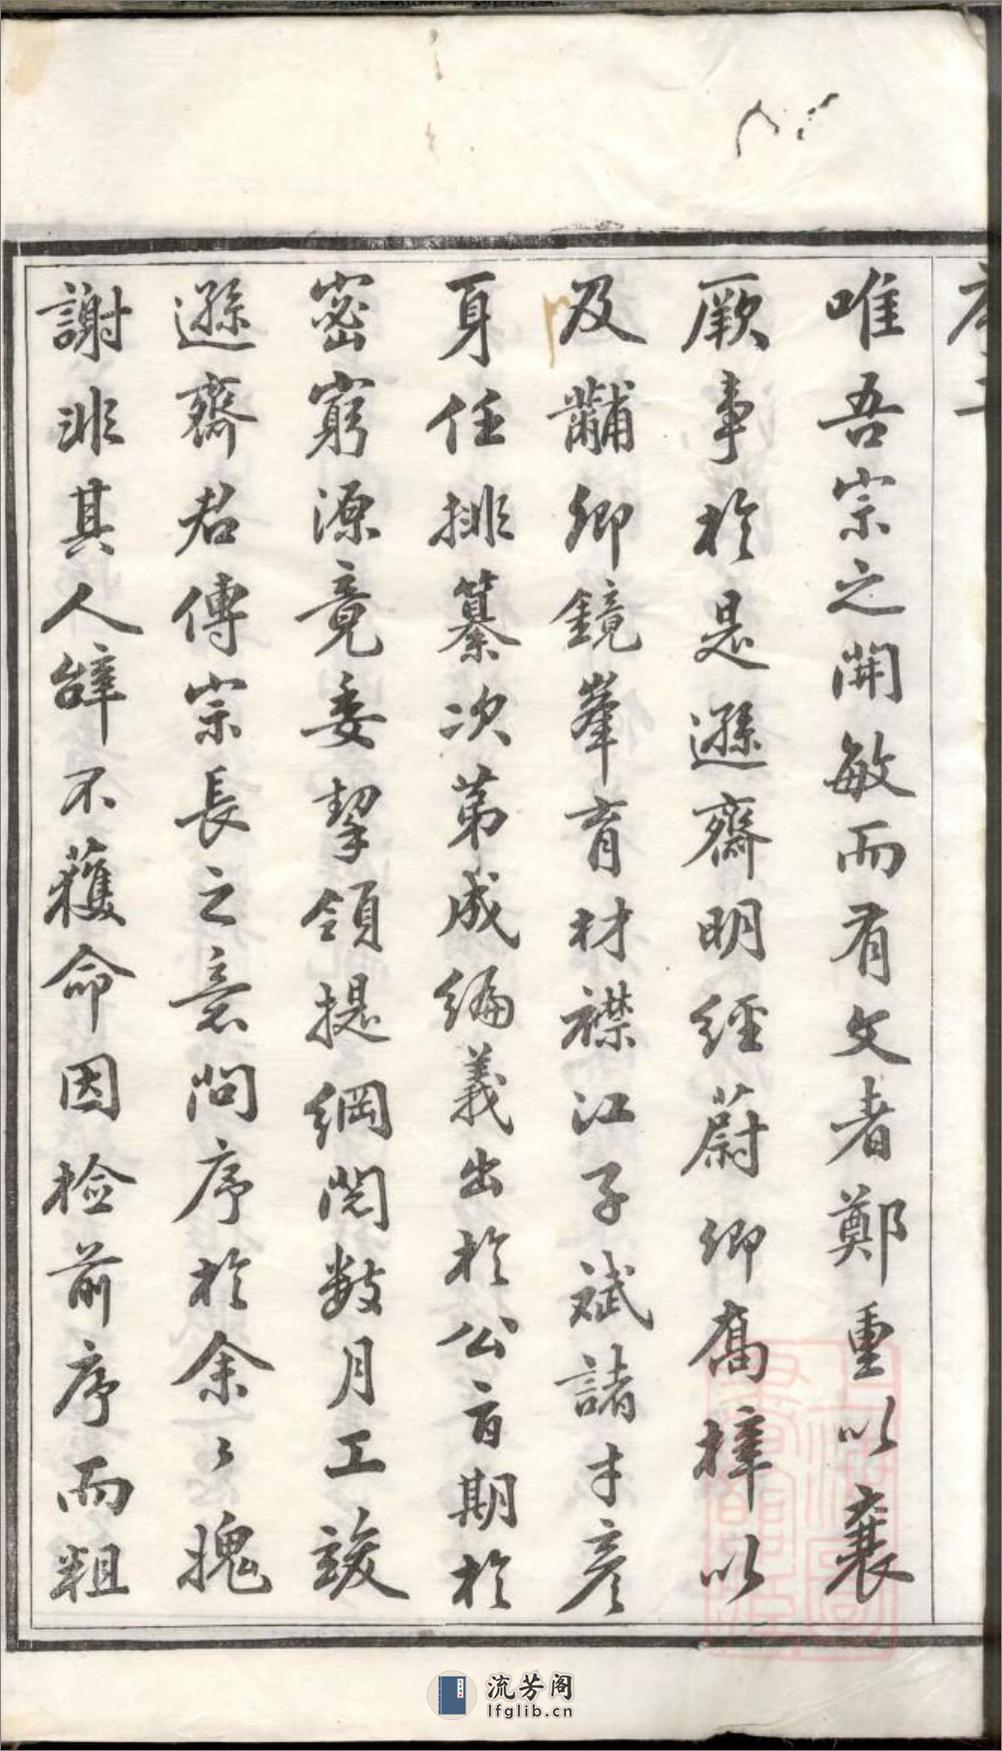 唯吾宗之開敏而有文者鄭重以襄
厥事於是遜齋明經蔚卿奮梓以
及黼卿鏡峯育材襟江子斌諸才彥
身任排纂次第成編義出於公旨期於
密窮源竟委挈領提綱閱數月工竣
遜齋君傳宗長之意問序於余〻愧
謝非其人辭不獲命因檢前序而粗
流芳阁
lfglib.cn